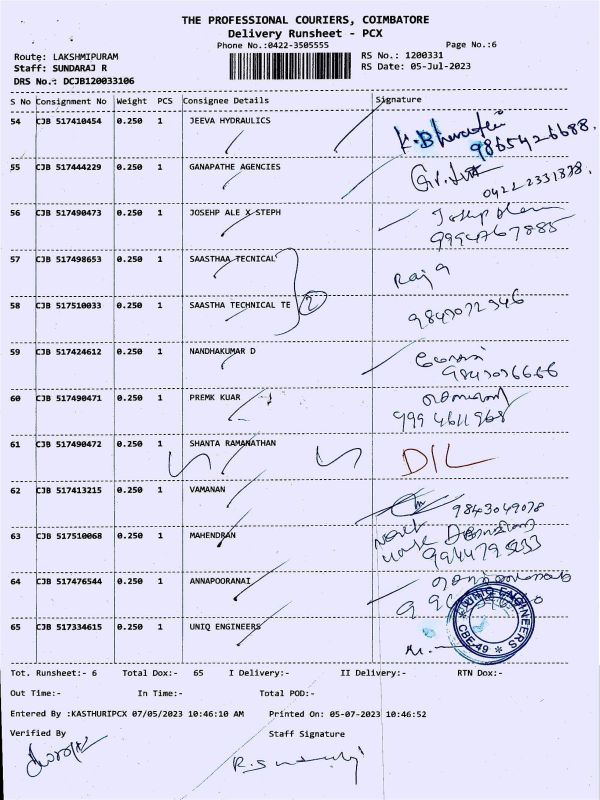 THE PROFESSIONAL COURIERS, COIMBATORE
Delivery Runsheet - PCX
Phone No.:0422-3505555 Page No.:6
Route: LAKSHMIPURAM RS No.: 1200331
Staff: SUNDARAJ R RS Date: 05-Jul-2023
DRS No.: DCJB120033106
S No Consignment No Weight PCS Consignee Details Signature
54 CJB 517410454 0.250 1 JEEVA HYDRAULICS
9865426688.
55 CJB 517444229 0.250 1 GANAPATHE AGENCIES
0422 2331838.
56 CJB 517490473 0.250 1 JOSEHP ALE X STEPH
Joshp
9994767885
57 CJB 517498653 0.250 1 SAASTHAA TECNICAL
Raja
58 CJB 517510033 0.250 1 SAASTHA TECHNICAL TE 2
59 CJB 517424612 0.250 1 NANDHAKUMAR D
60 CJB 517490471 0.250 1 PREMK KUAR
9994611968
61 CJB 517490472 0.250 1 SHANTA RAMANATHAN DIL
62 CJB 517413215 0.250 1 VAMANAN
9843049078
63 CJB 517510068 0.250 1 MAHENDRAN
64 CJB 517476544 0.250 1 ANNAPOORANAI
65 CJB 517334615 0.250 1 UNIQ ENGINEERS
UNIQ ENGINEERS
CBE-49
Tot. Runsheet:- 6 Total Dox:- 65 I Delivery:- II Delivery:- RTN Dox:-
Out Time:- In Time:- Total POD:-
Entered By :KASTHURIPCX 07/05/2023 10:46:10 AM Printed On: 05-07-2023 10:46:52
Verified By Staff Signature